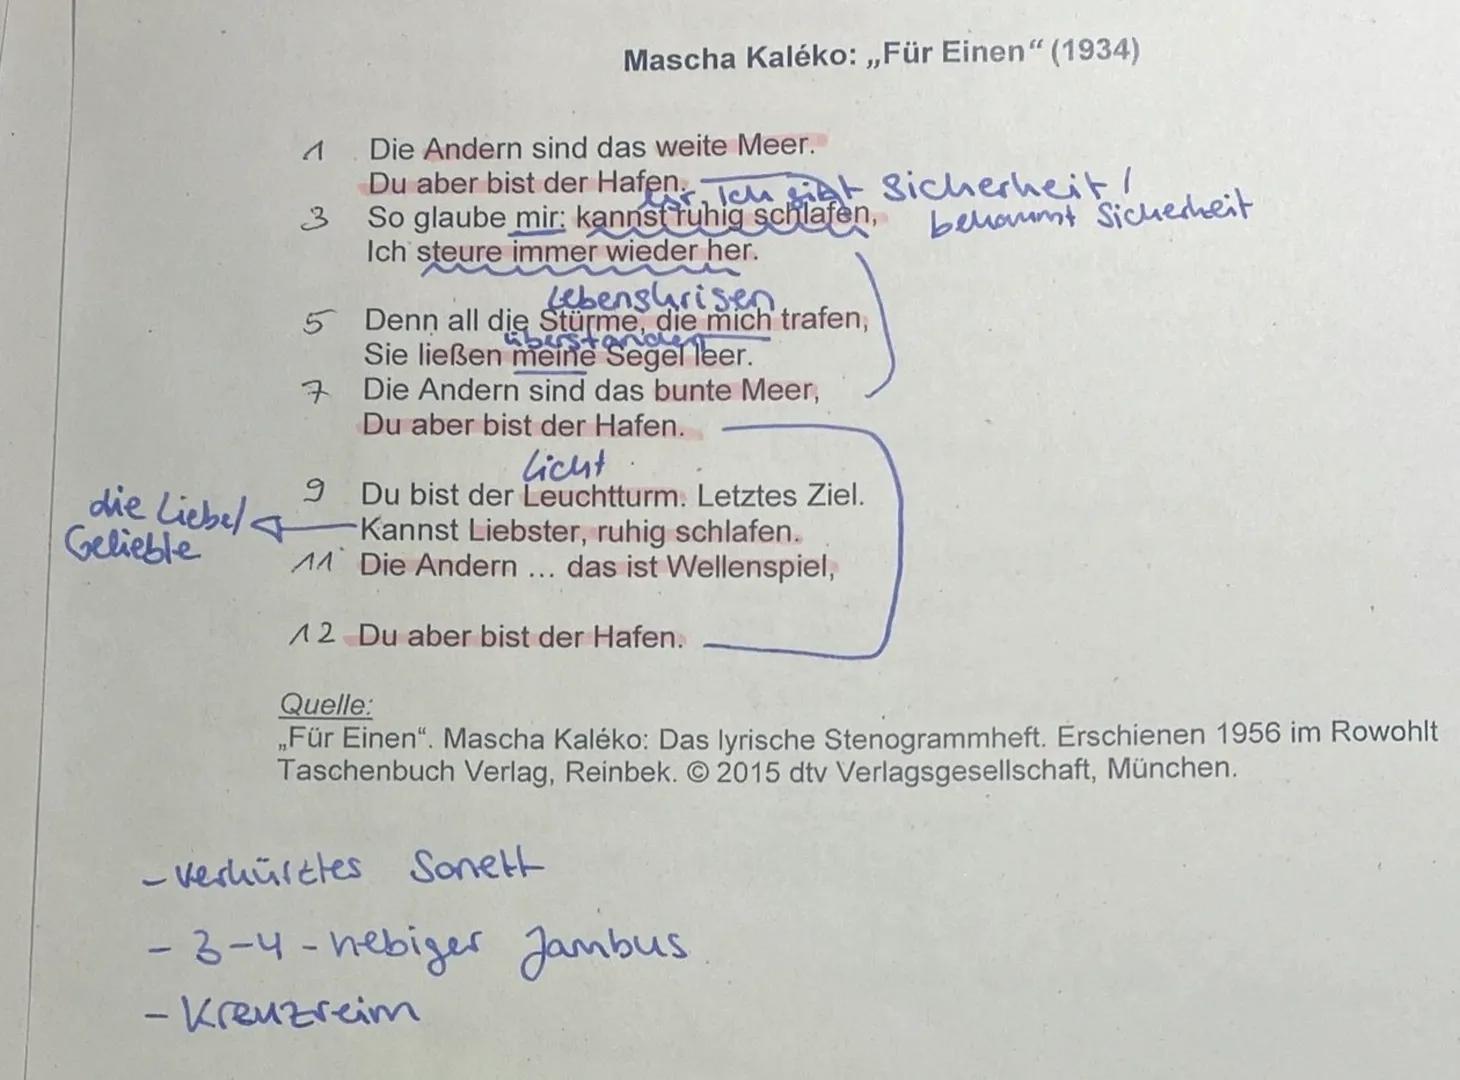 Mascha Kaléko: „Für Einen“ (1934)
1 Die Andern sind das weite Meer.
Du aber bist der Hafen.
lyr. Ich gibt Sicherheit /
bekommt Sicherheit
3 So glaube mir: kannst ruhig schlafen,
Ich steure immer wieder her.
Lebenskrisen
5 Denn all die Stürme, die mich trafen,
überstanden
Sie ließen meine Segel leer.
7 Die Andern sind das bunte Meer,
Du aber bist der Hafen.
Licht
9 Du bist der Leuchtturm. Letztes Ziel.
die Liebe/
Geliebte
Kannst Liebster, ruhig schlafen.
11 Die Andern ... das ist Wellenspiel,
12 Du aber bist der Hafen.
Quelle:
„Für Einen“. Mascha Kaléko: Das lyrische Stenogrammheft. Erschienen 1956 im Rowohlt
Taschenbuch Verlag, Reinbek. © 2015 dtv Verlagsgesellschaft, München.
- verkürztes Sonett
- 3-4-hebiger Jambus
- Kreuzreim